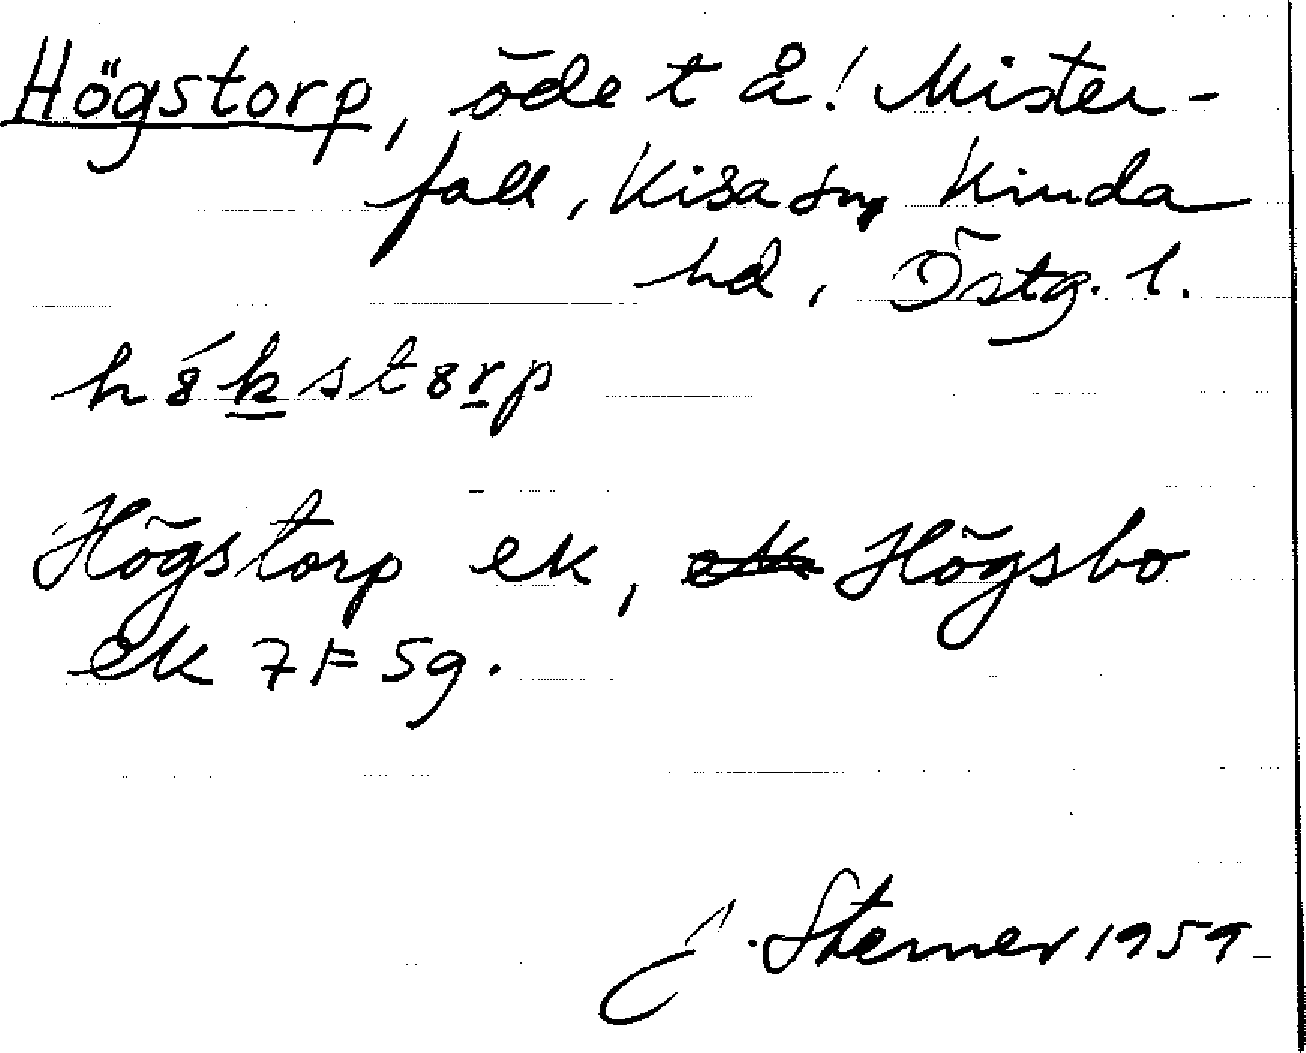 Högstorp, öde t å! Mister-
fall, Kisa sn, Kinda
hd, Östg. l.
h8́kst8rp
Högstorp ek, ek Högsbo
ek 7F 5g.
J. Sterner 1959